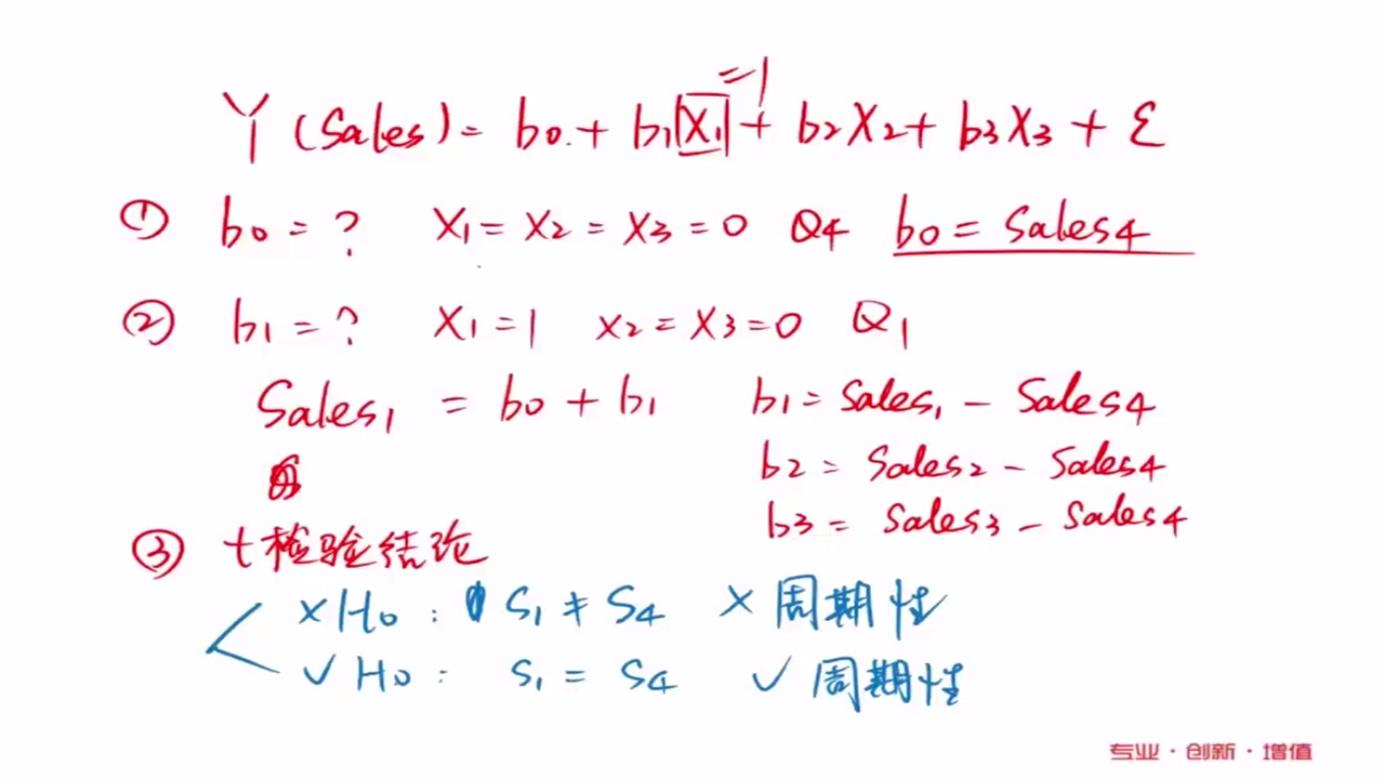 =1
Y (Sales) = b0 + b1 X1 + b2X2 + b3X3 + ε
① b0 = ? X1 = X2 = X3 = 0 Q4 b0 = Sales4
② b1 = ? X1 = 1 X2 = X3 = 0 Q1
Sales1 = b0 + b1 b1 = Sales1 - Sales4
b2 = Sales2 - Sales4
b3 = Sales3 - Sales4
③ t检验结论
×H0 : S1 ≠ S4 × 周期性
✓H0 : S1 = S4 ✓ 周期性
专业·创新·增值